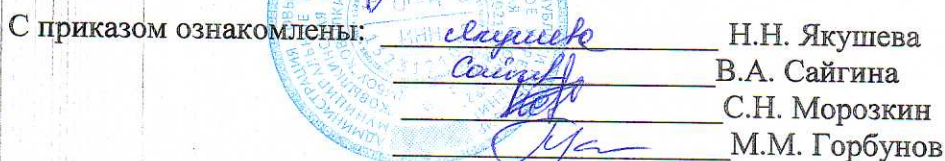 С приказом ознакомлены: Якушева Н.Н. Якушева
В.А. Сайгина
С.Н. Морозкин
М.М. Горбунов